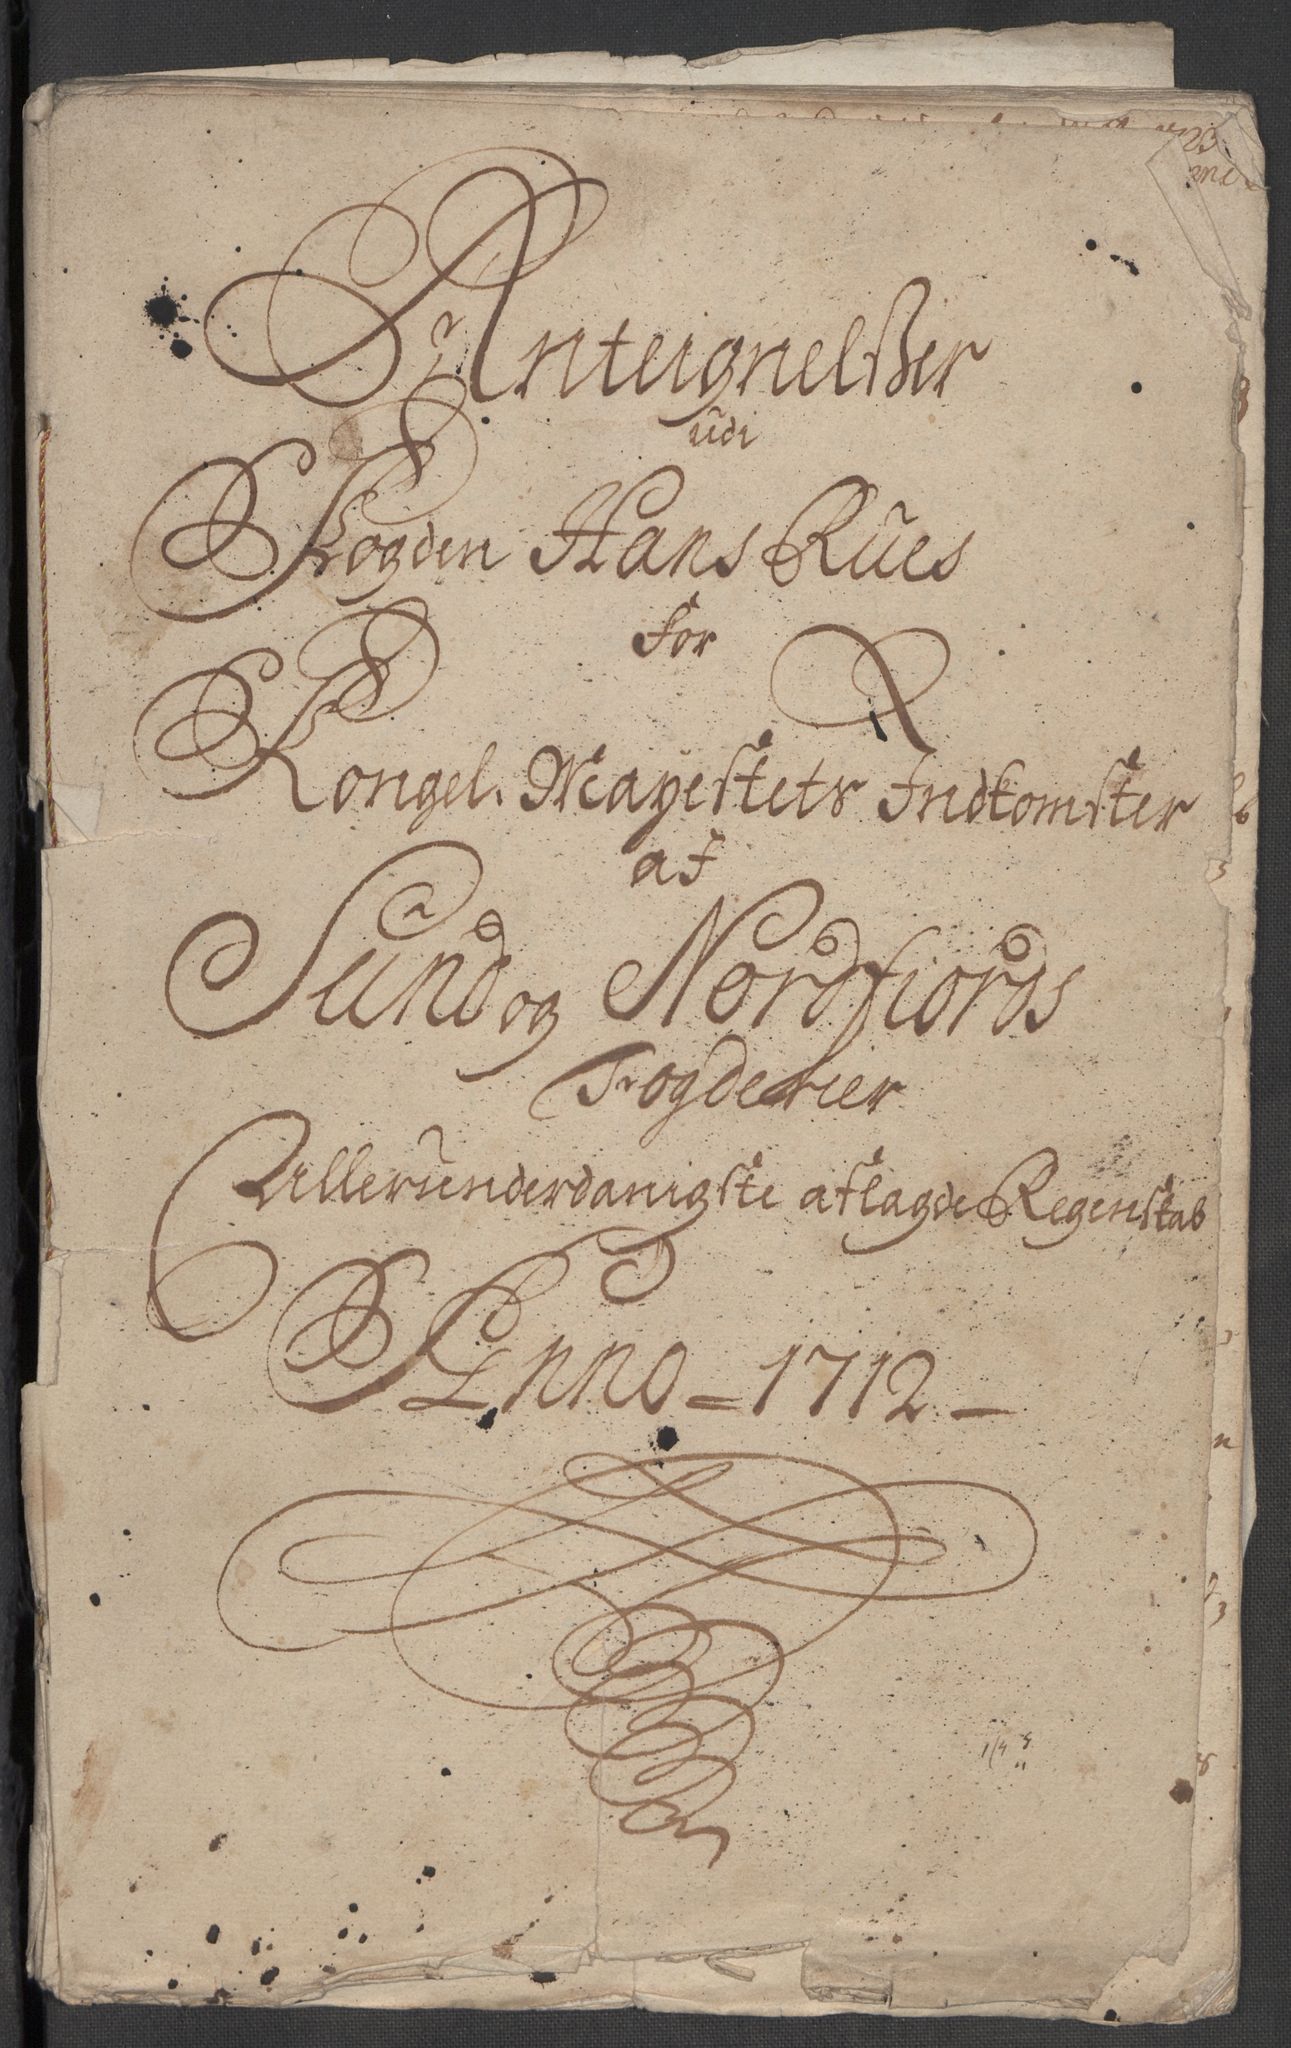 Anteignelßer
udi
Fogden Hans Rües
for
Kongel. Mayestets Indkomster
af
Sünd og Nordfiords
Fogderier
Alleründerdanigste aflagde Regenskab
Anno = 1712 -